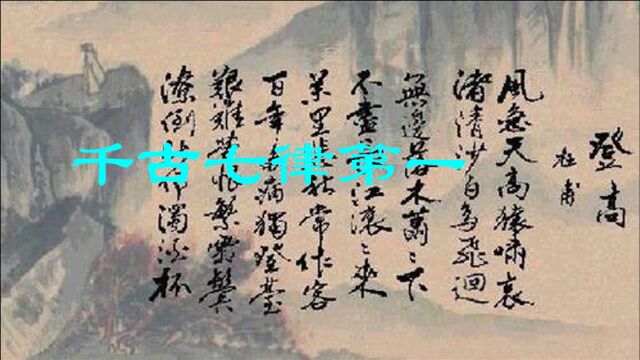 千古七律第一
登高
杜甫
風急天高猿嘯哀
渚清沙白鳥飛迴
無邊落木蕭〻下
不盡長江滾〻来
萬里悲秋常作客
百年多病獨登臺
艱難苦恨繁霜鬢
潦倒新停濁酒杯